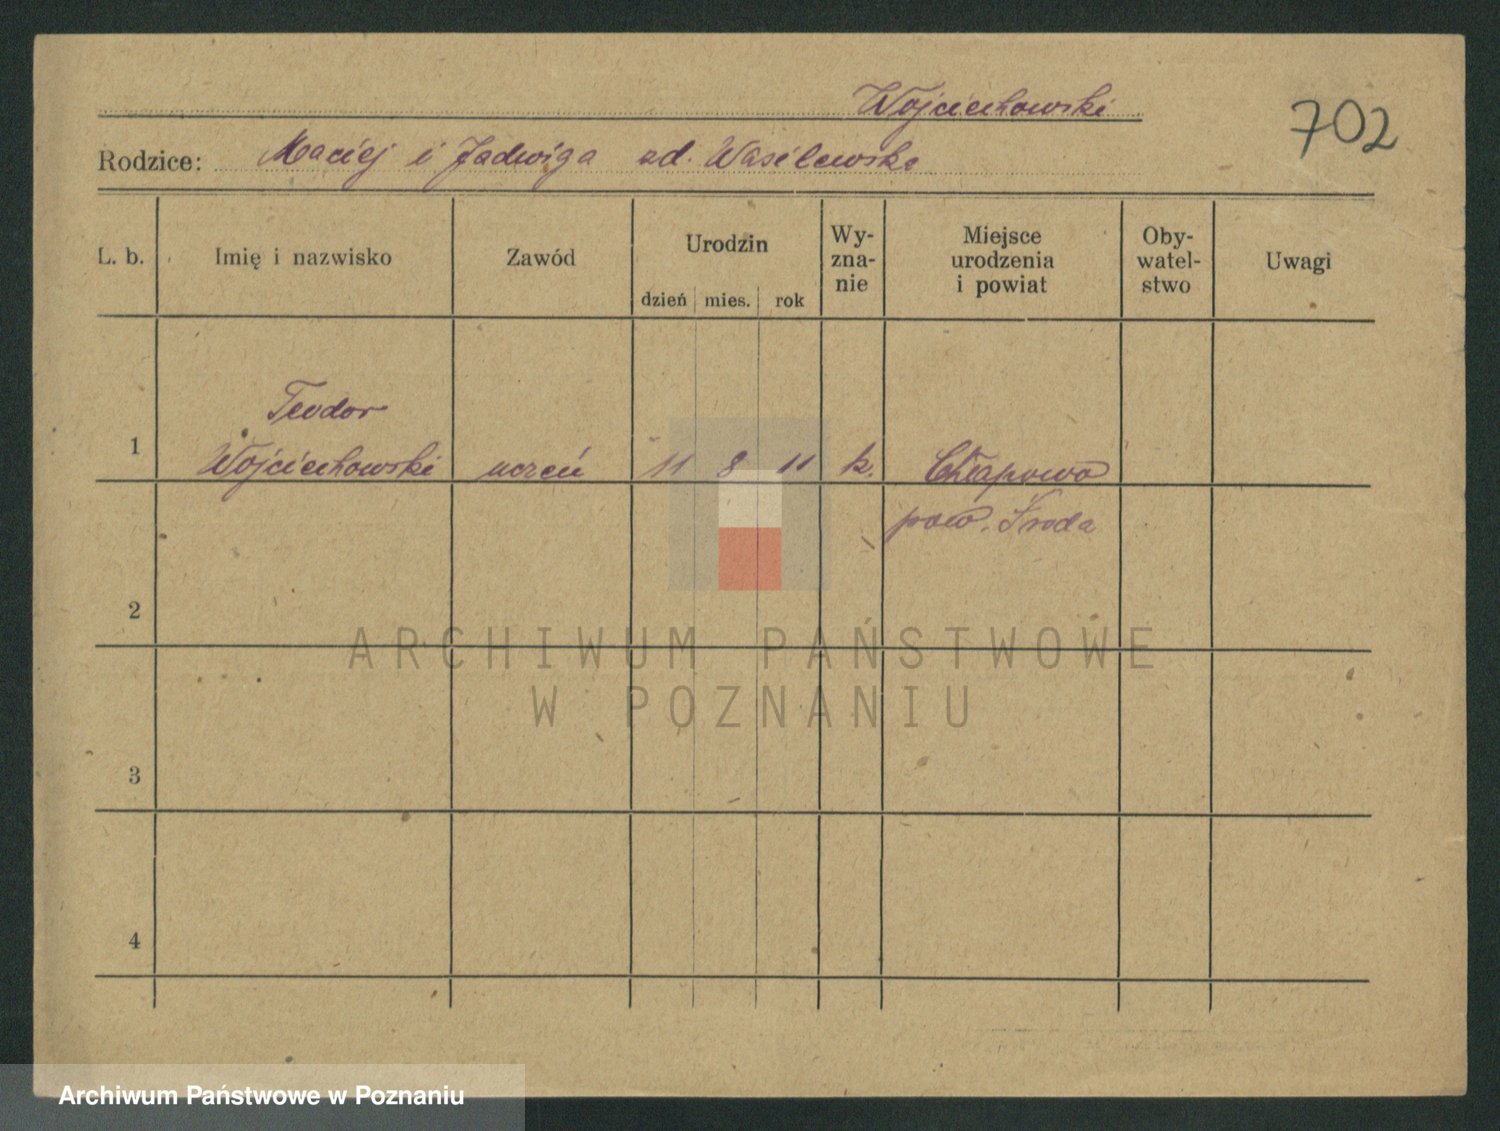 Wojciechowski
702
Rodzice: Maciej i Jadwiga zd. Wasilewska
L. b. Imię i nazwisko Zawód Urodzin dzień mies. rok Wy-zna-nie Miejsce urodzenia i powiat Oby-watel-stwo Uwagi
Teodor
1 Wojciechowski uczeń 11 8 11 k. Chłapowo
pow. Środa
2
ARCHIWUM PAŃSTWOWE
W POZNANIU
3
4
Archiwum Państwowe w Poznaniu